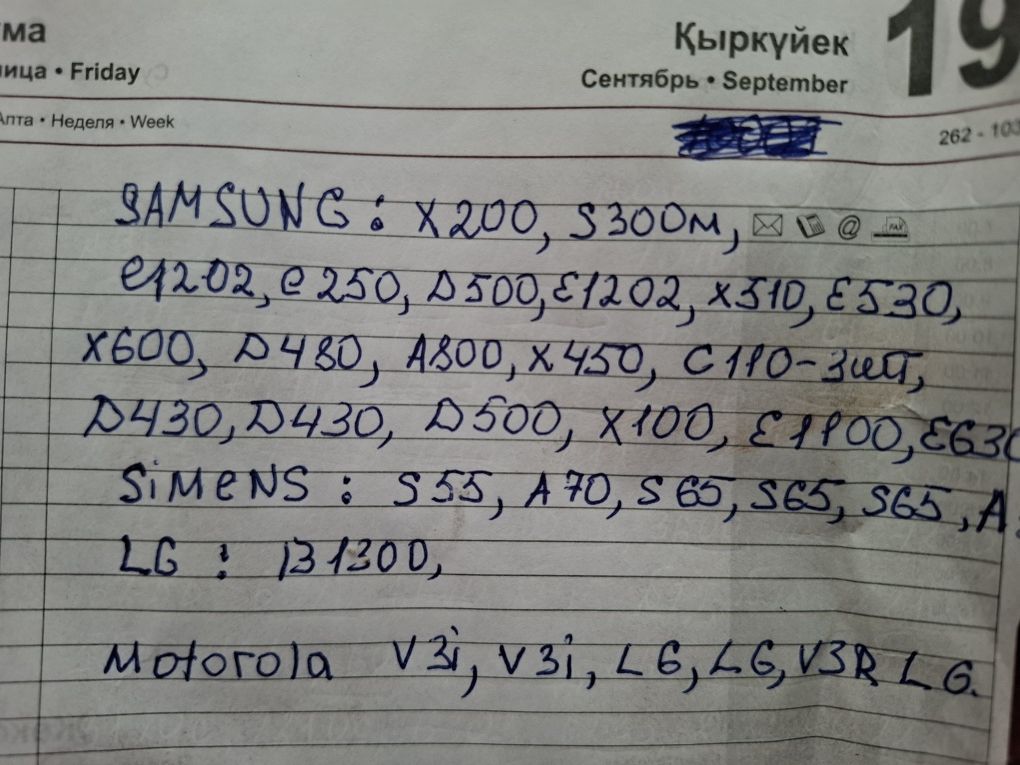 ма
Қыркүйек
19
ница • Friday
Сентябрь • September
Апта • Неделя • Week
262 - 103
SAMSUNG : X200, S300м,
FAX
C1202, C250, D500, E1202, X510, E530,
X600, D480, A800, X450, C110-зит,
D430, D430, D500, X100, E1100, E630
SiMeNS : S55, A70, S65, S65, S65, A
LG : B1300,
Motorola V3i, V3i, L6, L6, V3R L6.